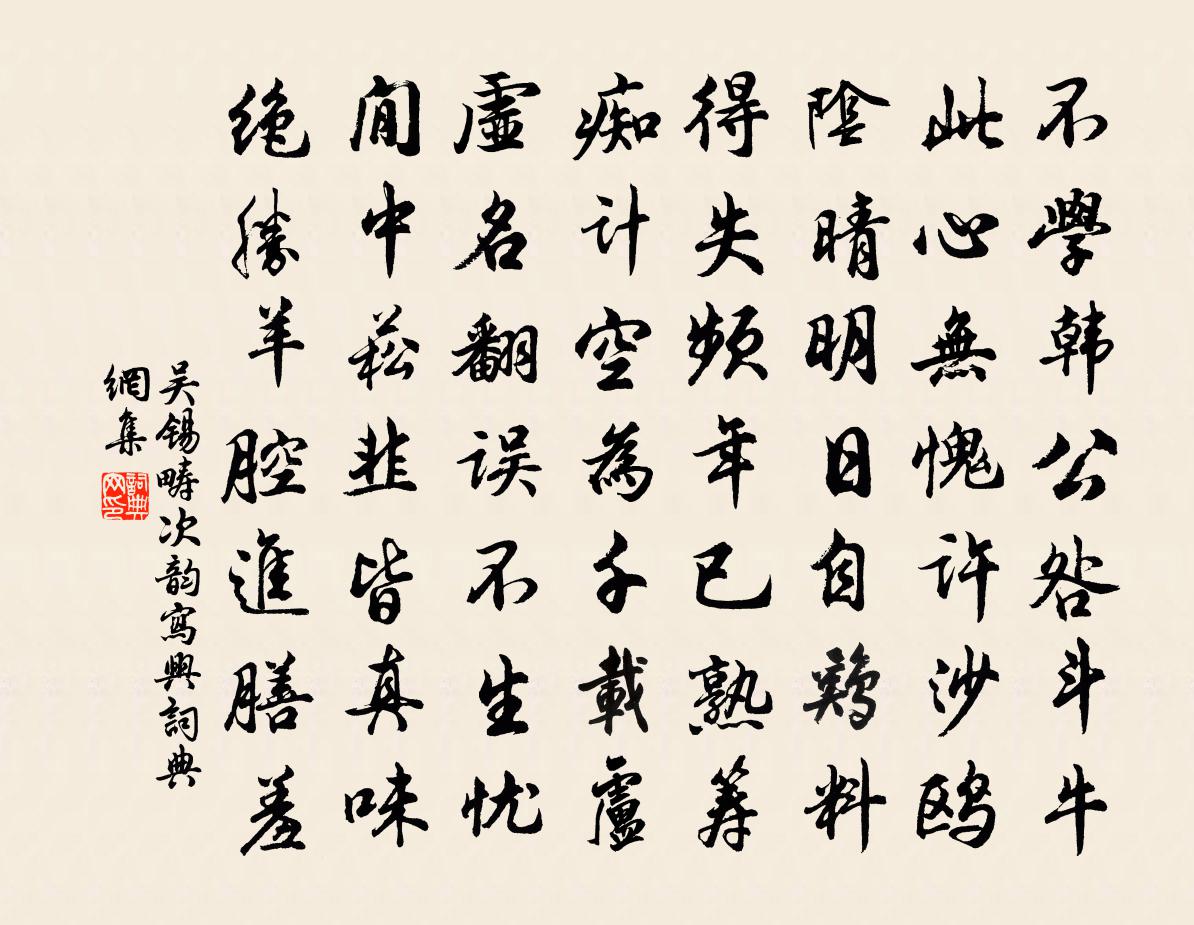 不學韩公咎斗牛
此心無愧许沙鸥
陰晴明日自鷄料
得失频年已熟筹
痴计空為千載盧
虚名翻误不生忧
閒中菘韭皆真味
绝勝羊腔進膳羞
吴锡疇次韵寫興詞典
網集
詞典
网印